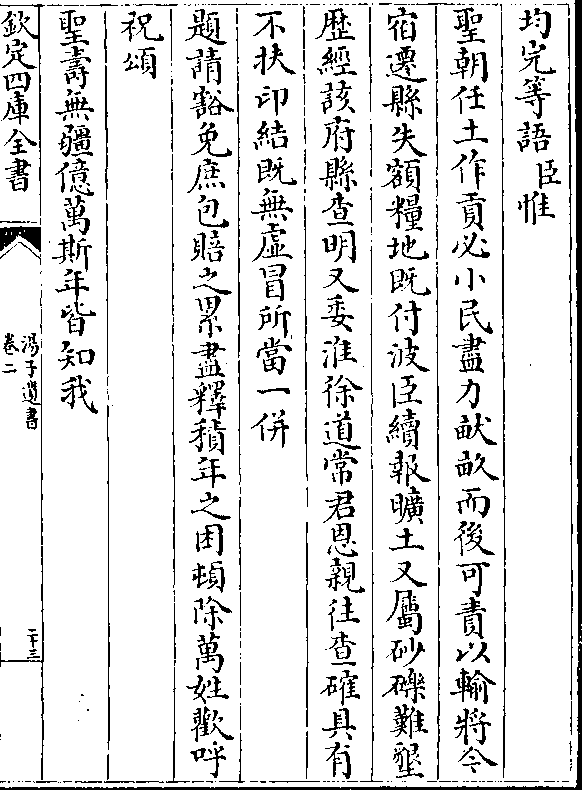 均完等語臣惟
聖朝任土作貢必小民盡力畎畝而後可責以輸將今
宿遷縣失額糧地既付波臣續報曠土又屬砂礫難墾
歴經該府縣查明又委淮徐道常君恩親往查確具有
不扶印結既無虛冒所當一併
題請豁免庶包賠之累盡釋積年之困頓除萬姓歡呼
祝頌
聖壽無疆億萬斯年皆知我
欽定四庫全書
湯子遺書
卷二
二十三